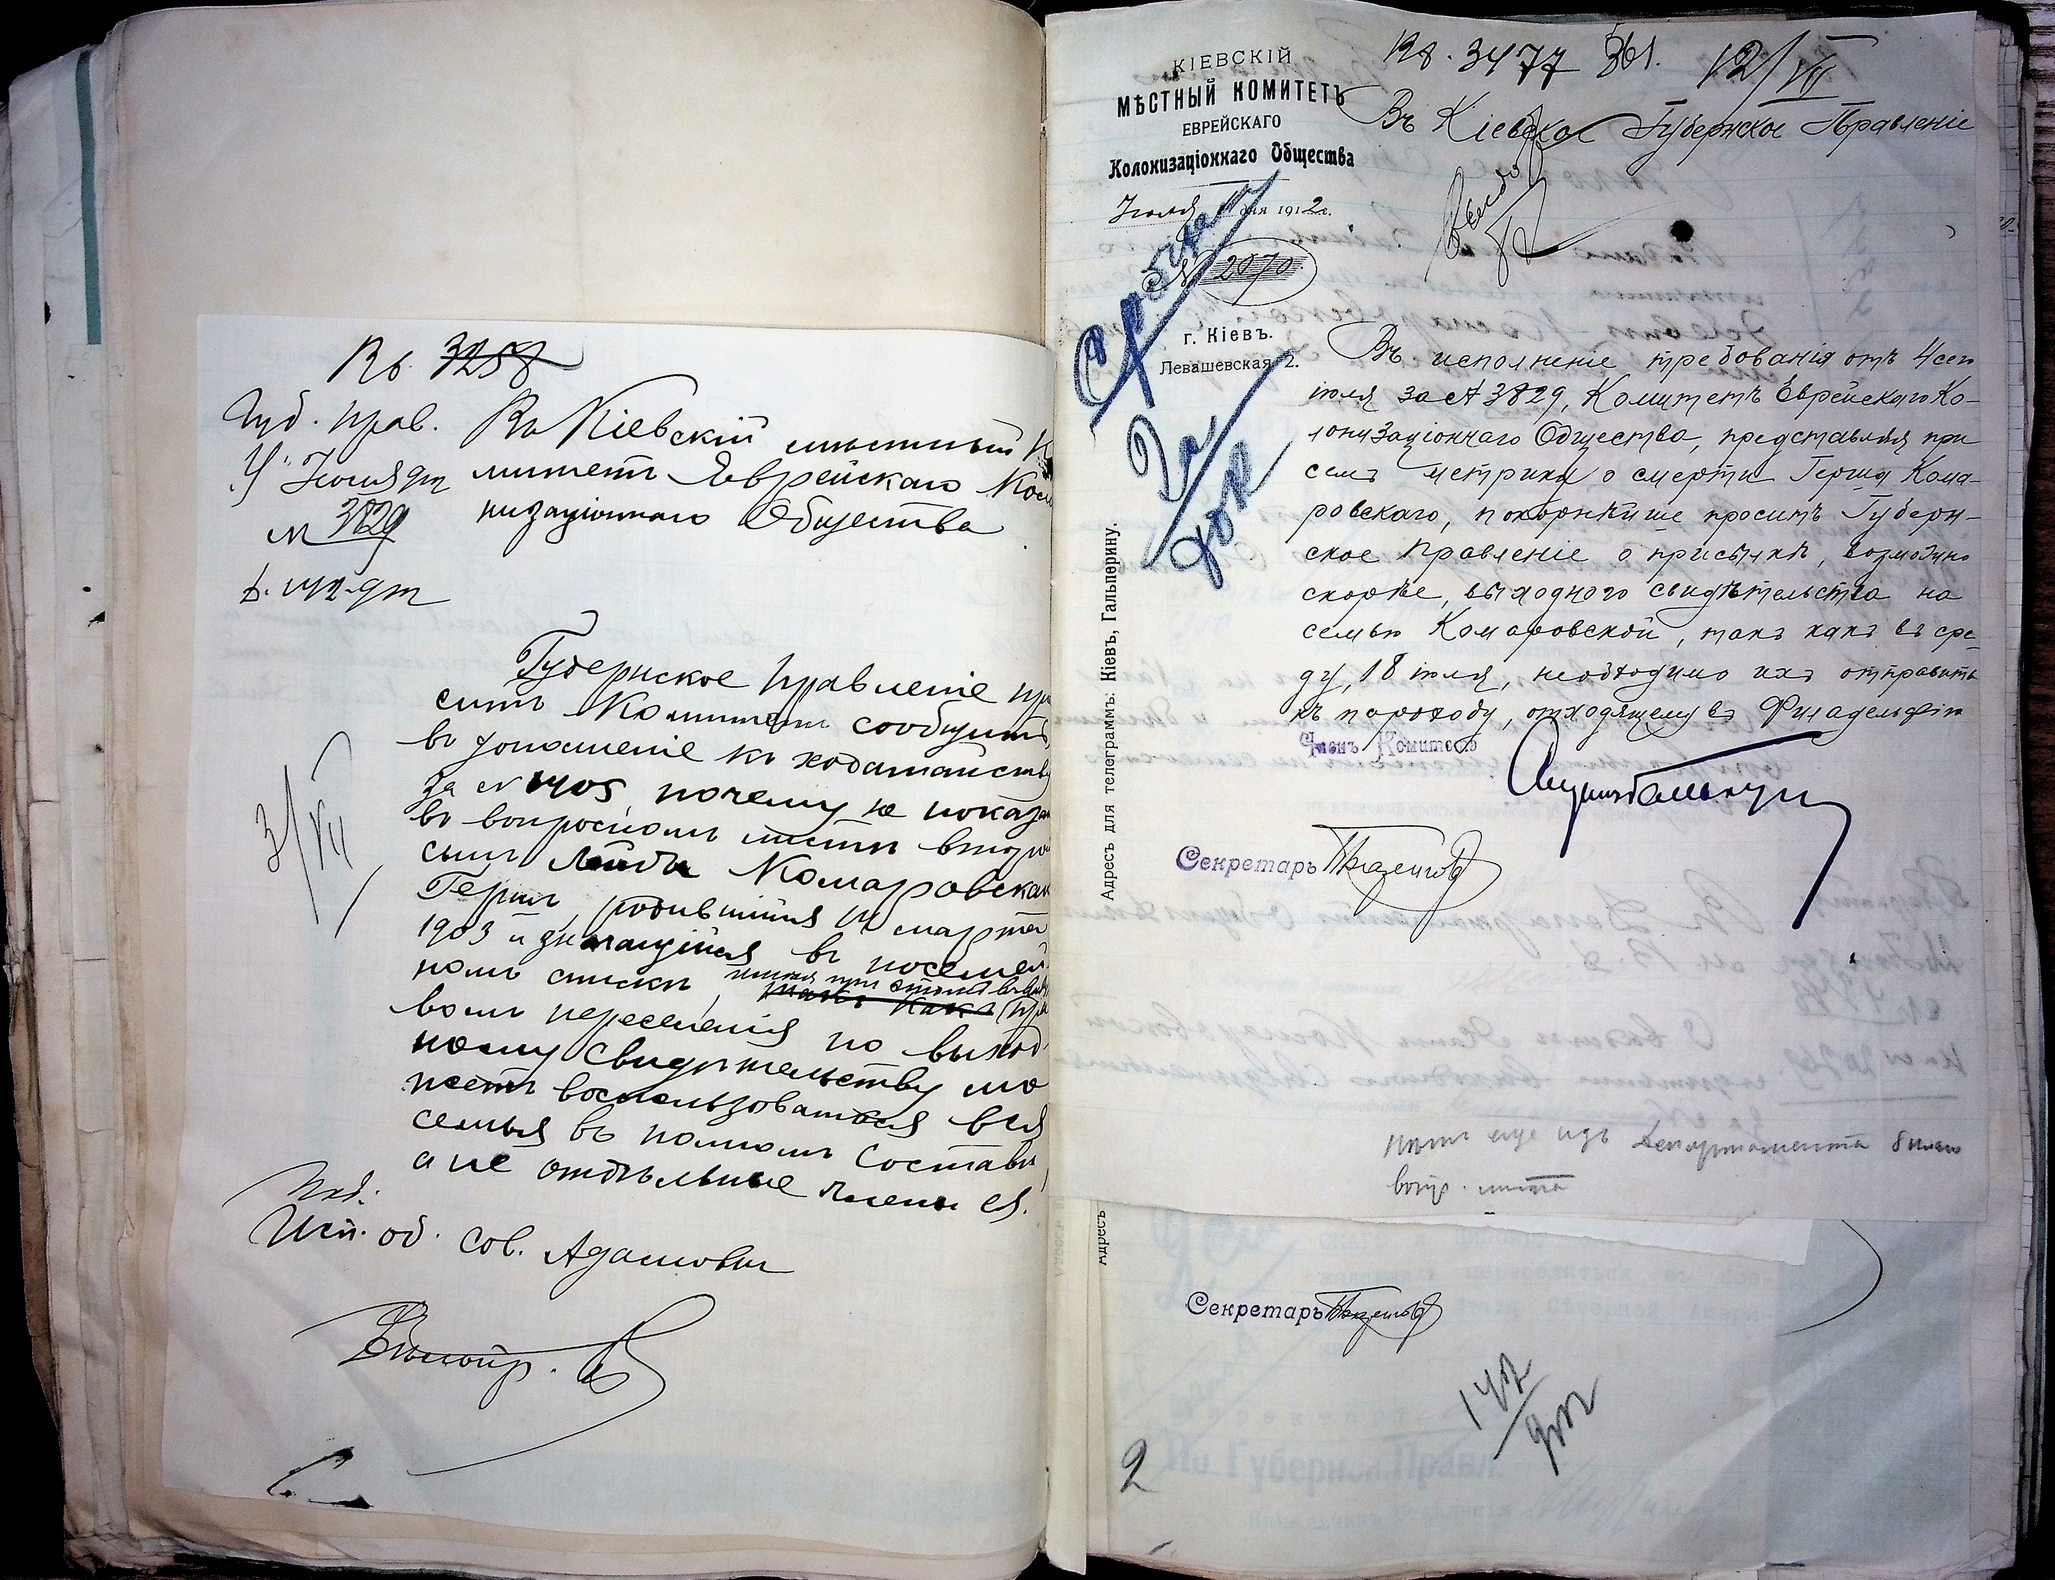 Вх. 3258
Губ. прав.
4 Июля дня
№ 3829
Въ Кіевскій мѣстный Ко
митетъ Еврейскаго Коло
низаціоннаго Общества
Губернское Правленіе про
ситъ Комитетъ сообщить,
въ дополненіе къ ходатайству
за № 1405, почему не показан
въ вопросномъ листѣ второй
сынъ Лейбы Комаровскаго
Гершъ, родившійся 14 марта
1903 и значащійся въ посемей
номъ спискѣ, имѣя при этомъ въ виду
такъ какъ пра
вомъ переселенія по выход
ному свидѣтельству мо
жетъ воспользоваться вся
семья въ полномъ составѣ,
а не отдѣльные члены ея.
3/VII
Под.:
Исп. об. Сов. Адамовичъ
КІЕВСКІЙ
МѢСТНЫЙ КОМИТЕТЪ
ЕВРЕЙСКАГО
Колонизаціоннаго Общества
Іюля 11 дня 1912 г.
№ 2070
г. Кіевъ.
Левашевская, 2.
Адресъ для телеграммъ: Кіевъ, Гальперину.
Вх. 3477 861. 12/VII
Въ Кіевское Губернское Правленіе
Въ исполненіе требованія отъ 4 сего
іюля за № 3829, Комитетъ Еврейскаго Ко-
лонизаціоннаго Общества, представляя при
семъ метрику о смерти Герша Кома-
ровскаго, покорнѣйше проситъ Губерн-
ское Правленіе о присылкѣ, возможно
скорѣе, выходного свидѣтельства на
семью Комаровской, такъ какъ въ сре-
ду, 18 іюля, необходимо ихъ отправить
къ пароходу, отходящему въ Филадельфію
Членъ Комитета
Секретарь
нѣтъ еще изъ Департамента бланк
вопр. листа
Адресъ
Секретарь
142
2